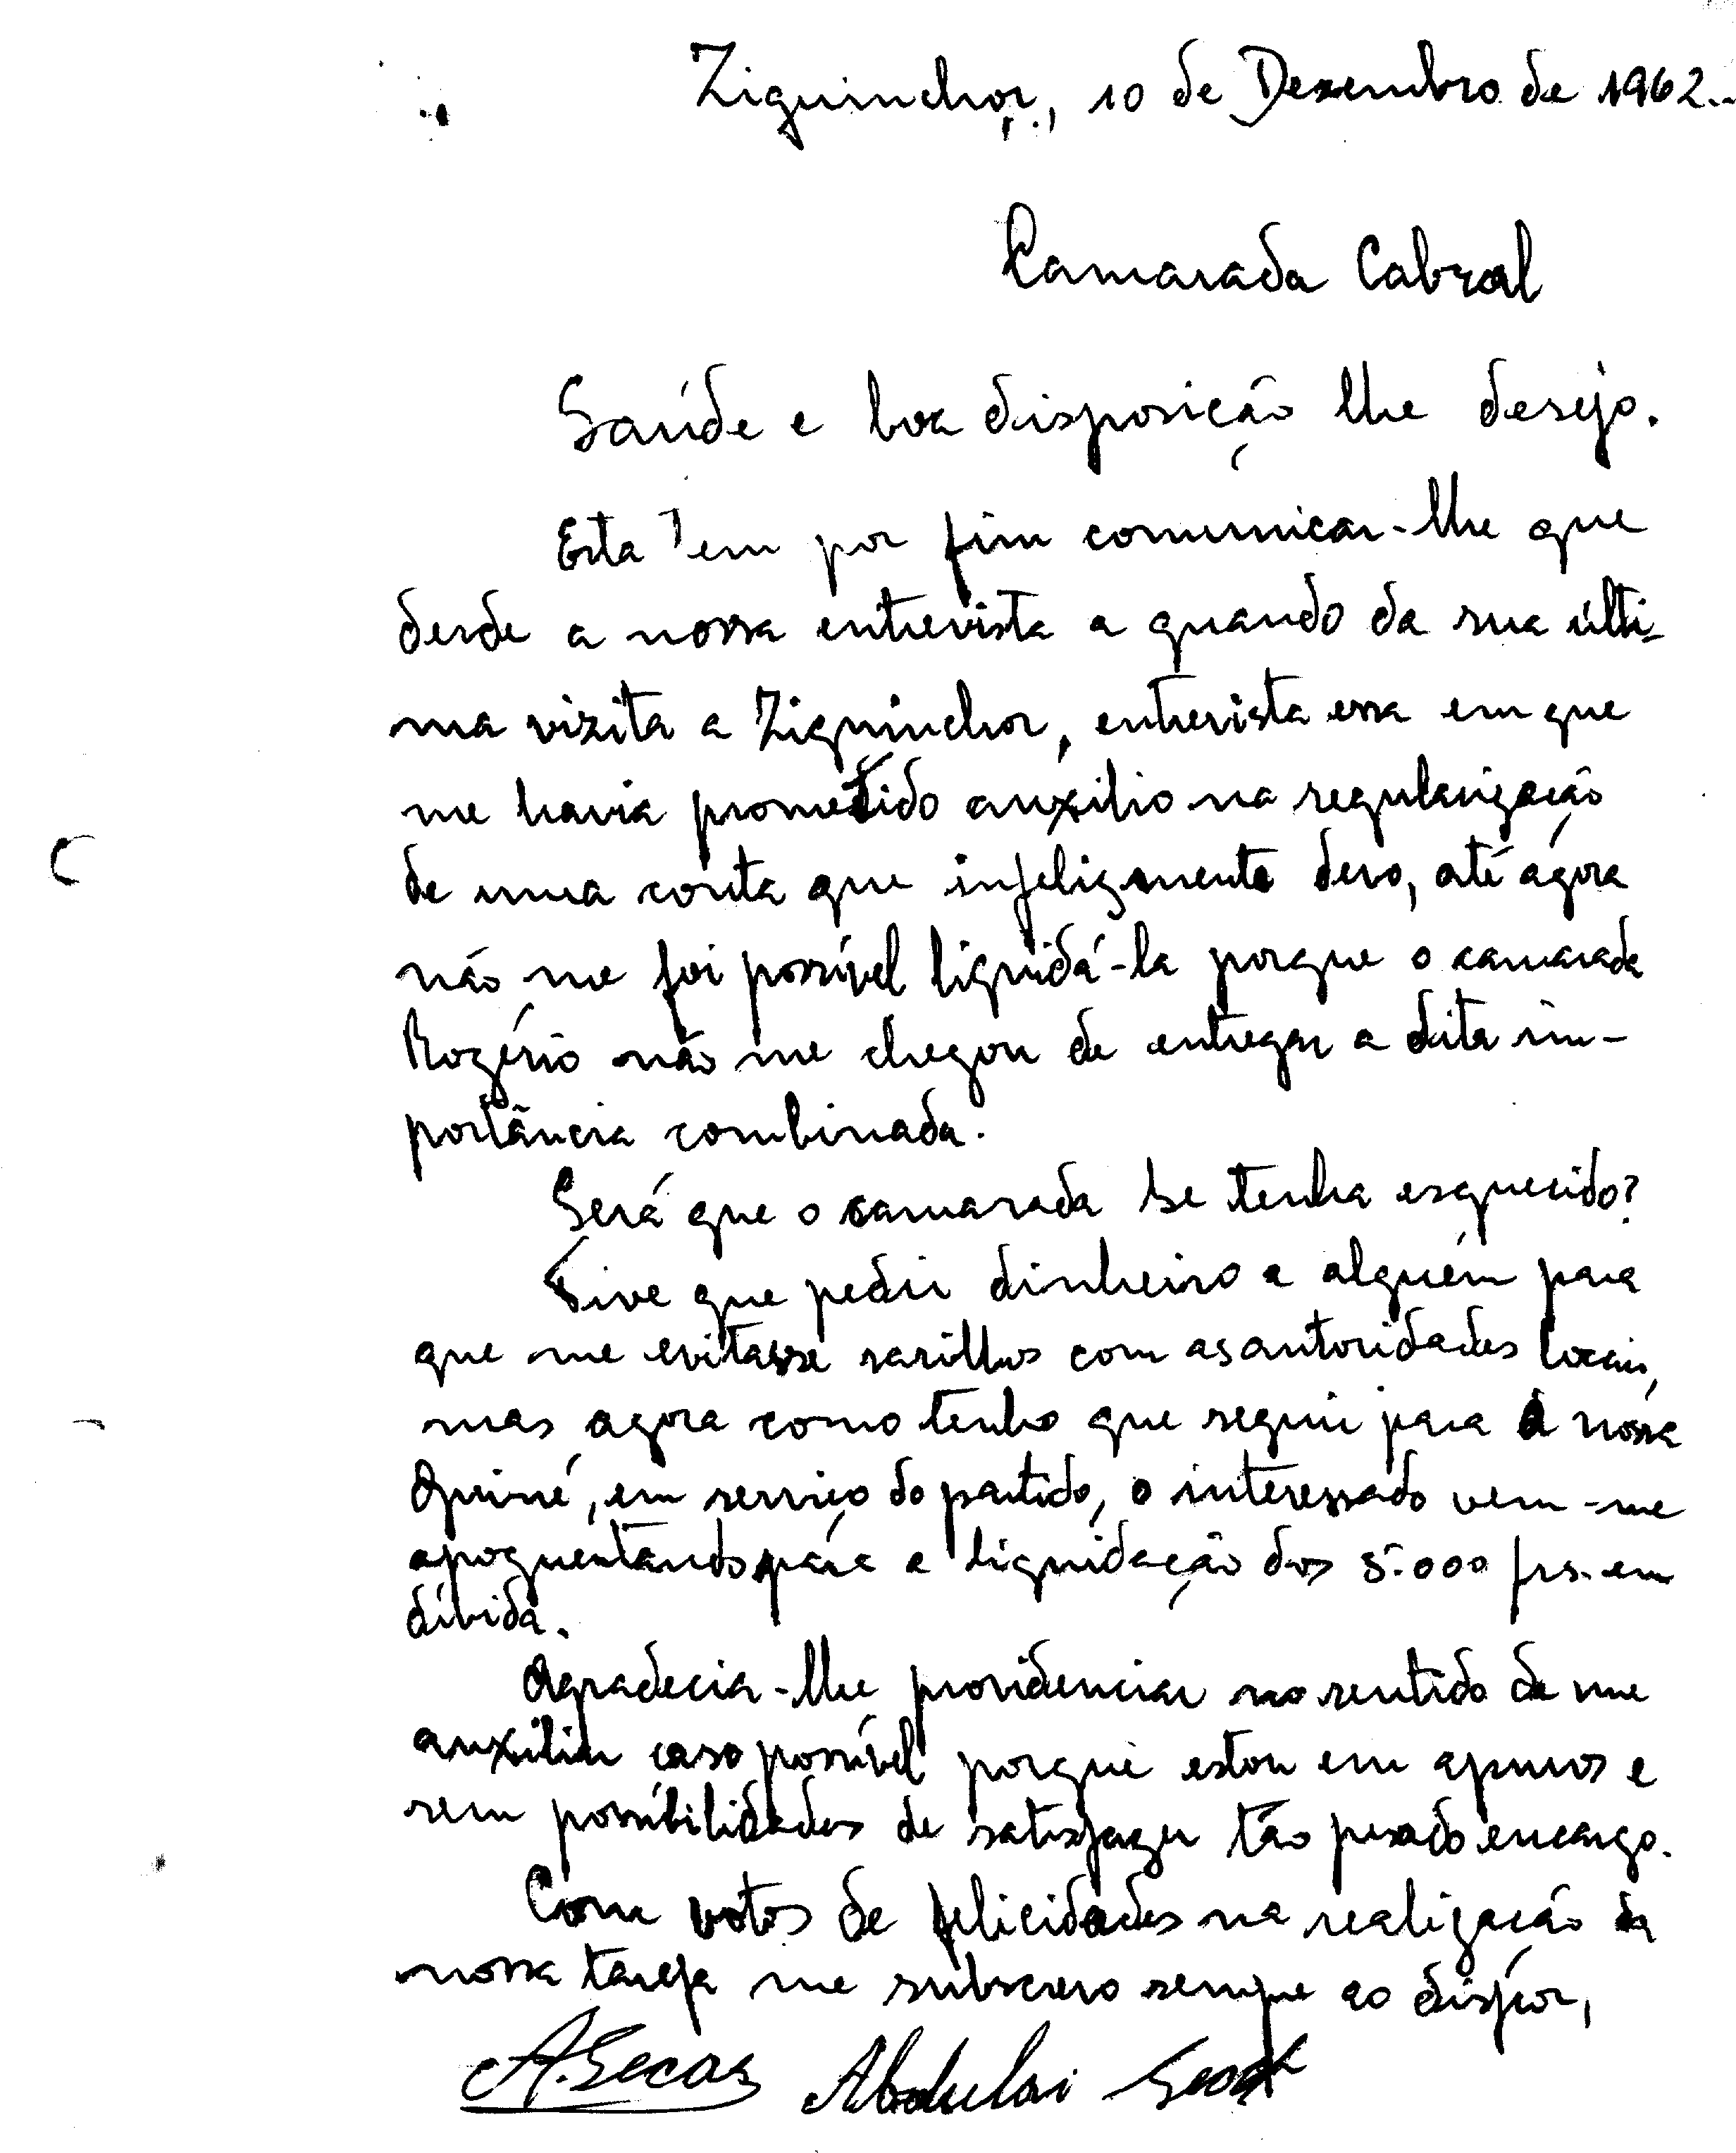 Ziguinchor, 10 de Dezembro de 1962.-
Camarada Cabral
Saúde e boa disposição lhe desejo.
Esta tem por fim comunicar-lhe que
desde a nossa entrevista a quando da sua últi-
ma vizita a Ziguinchor, entrevista essa em que
me havia prometido auxílio na regularização
de uma conta que infelizmente devo, até agora
não me foi possível liquidá-la porque o camarada
Rogério não me chegou de entregar a dita im-
portância combinada.
Será que o camarada se tenha esquecido?
Tive que pedir dinheiro a alguém para
que me evitasse sarilhos com as autoridades locais,
mas agora como tenho que seguir para a nossa
Guiné, em serviço do partido, o interessado vem-me
apoquentando para a liquidação dos 5.000 frs. em
dívida.
Agradecia-lhe providenciar no sentido de me
auxiliar caso possível porque estou em apuros e
sem possibilidades de satisfazer tão pesado encargo.
Com votos de felicidades na realização da
nossa tarefa me subscrevo sempre ao dispor,
A. Secas Abdulai